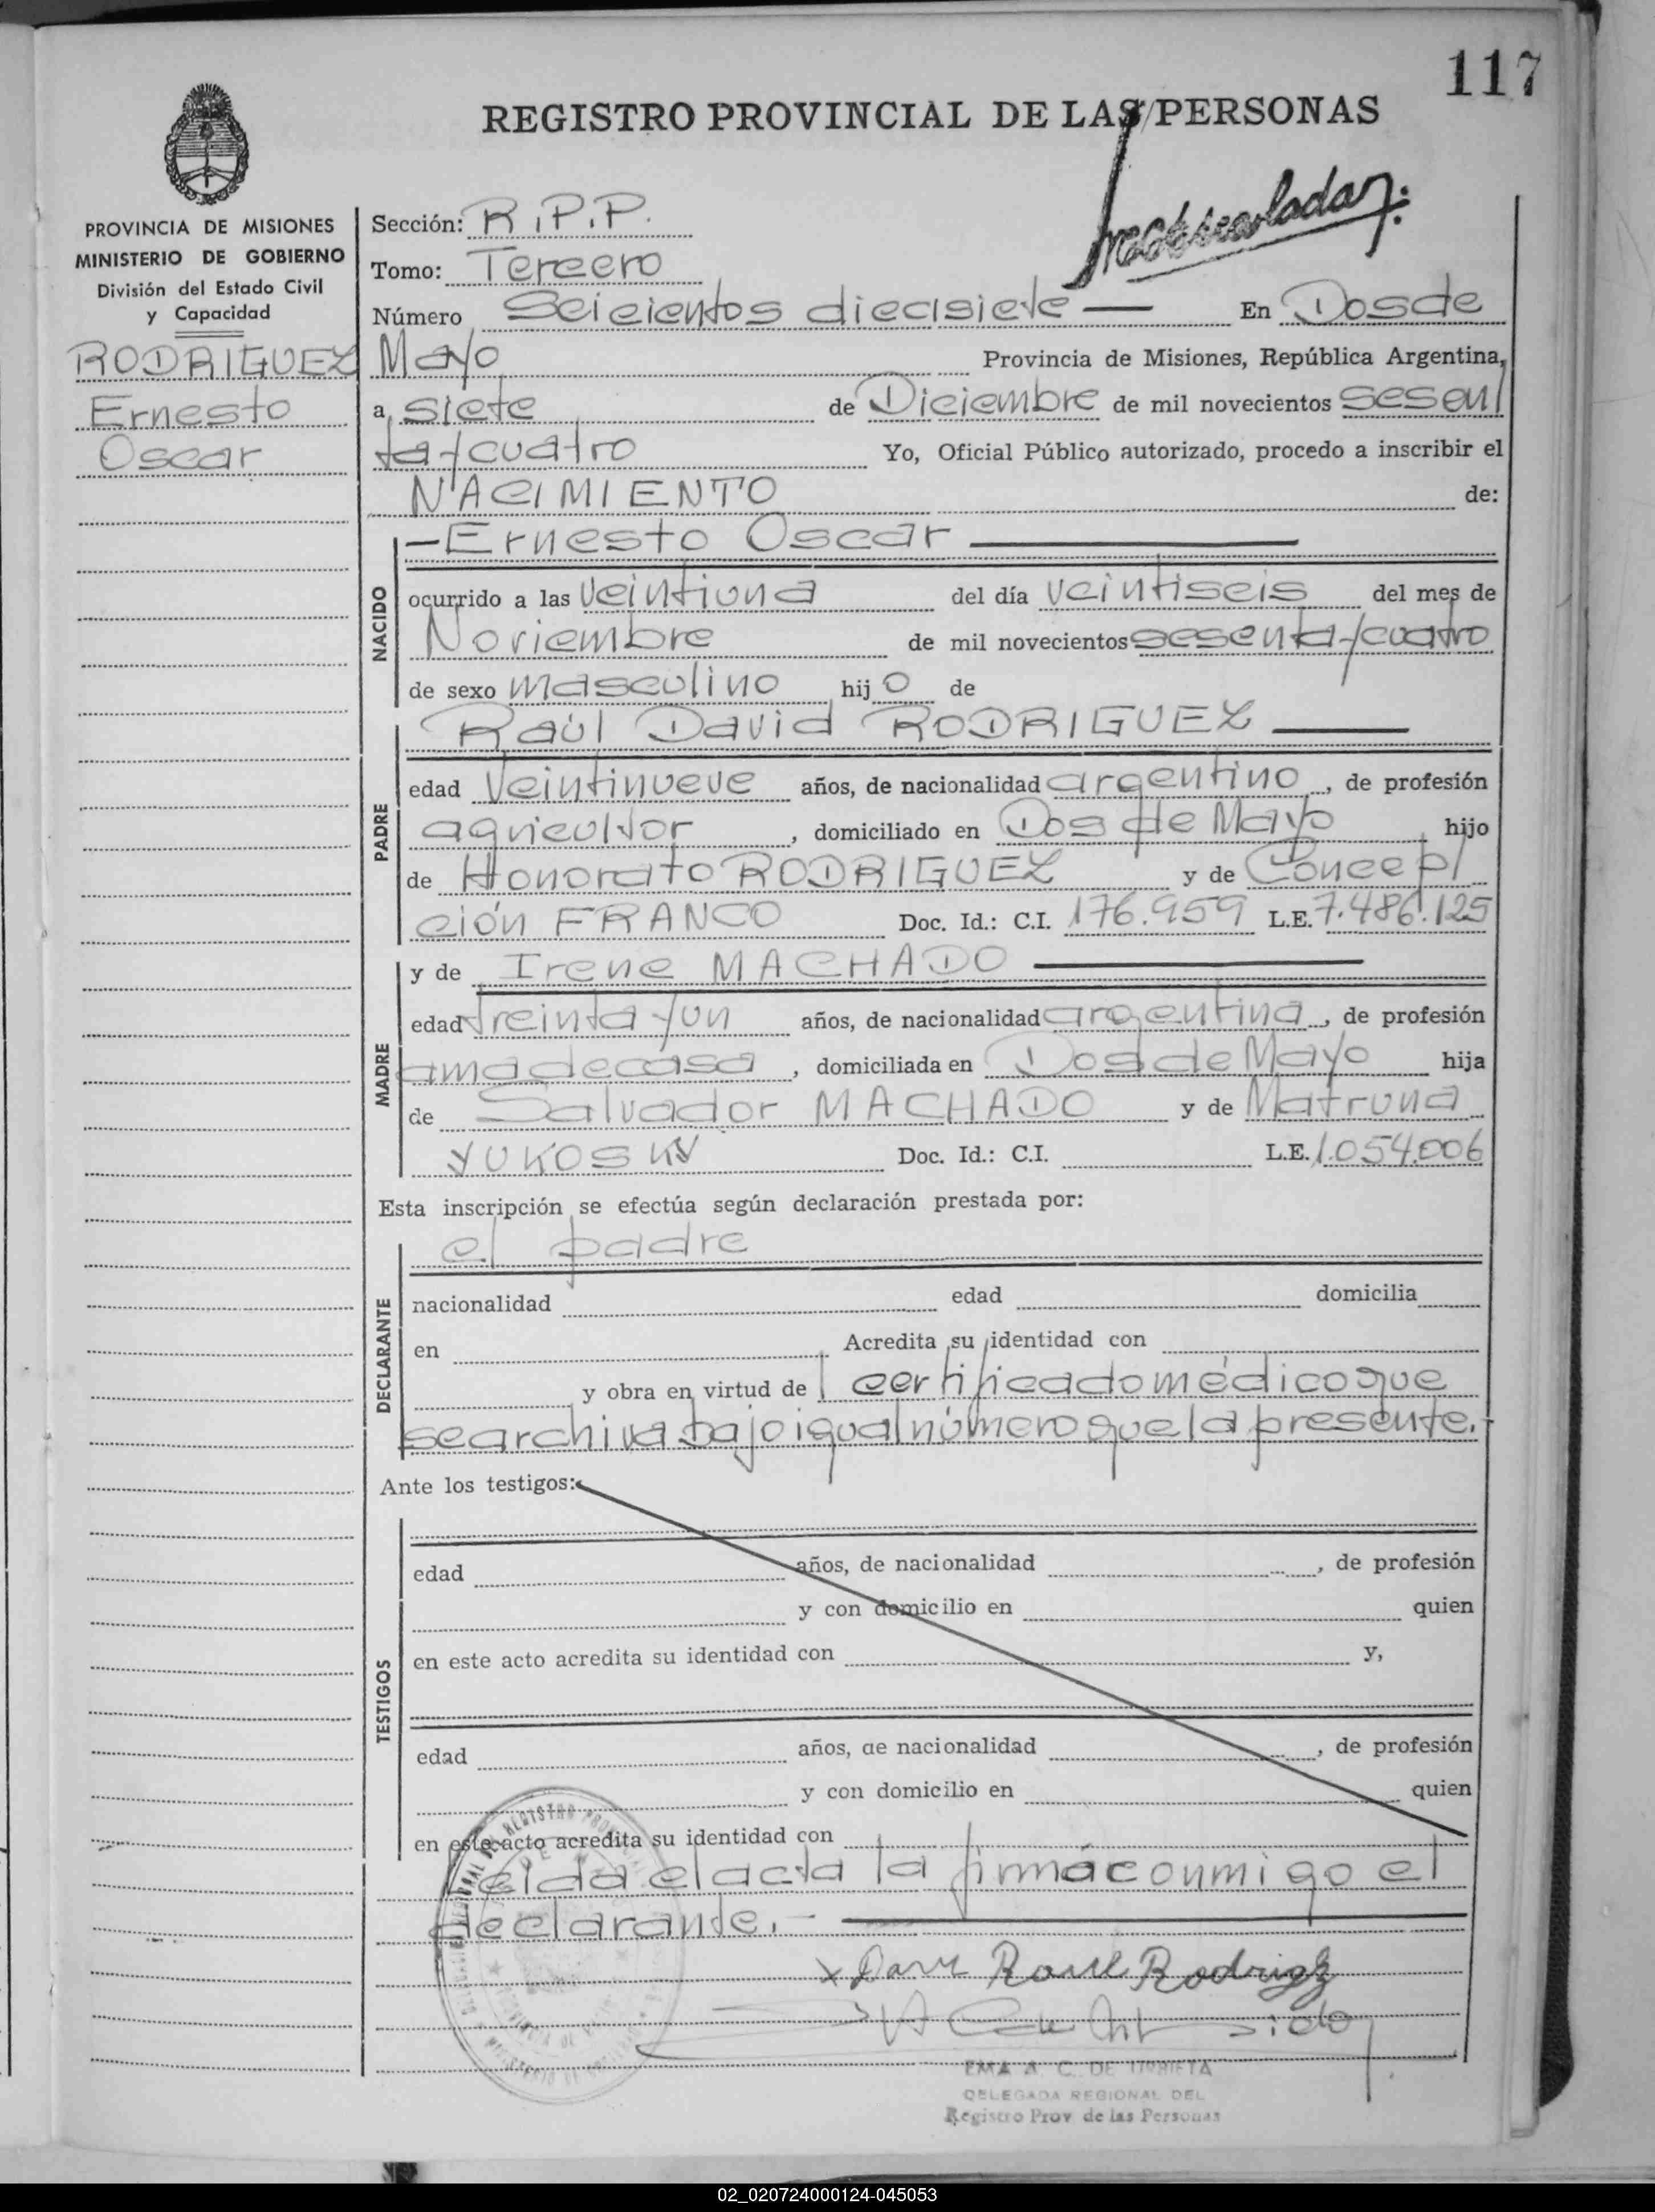 117
REGISTRO PROVINCIAL DE LAS PERSONAS
PROVINCIA DE MISIONES
MINISTERIO DE GOBIERNO
División del Estado Civil
y Capacidad
RODRIGUEZ
Ernesto
Oscar
Sección: R.P.P.
Tomo: Tercero
Número Seicientos diecisiete — En Dos de
Mayo Provincia de Misiones, República Argentina,
a siete de Diciembre de mil novecientos sesen/
ta y cuatro Yo, Oficial Público autorizado, procedo a inscribir el
NACIMIENTO de:
NACIDO
— Ernesto Oscar —
ocurrido a las veintiuna del día veintiseis del mes de
Noviembre de mil novecientos sesenta y cuatro
de sexo masculino hijo de
PADRE
Raúl David RODRIGUEZ —
edad Veintinueve años, de nacionalidad argentino, de profesión
agricultor, domiciliado en Dos de Mayo hijo
de Honorato RODRIGUEZ y de Concep/
ción FRANCO Doc. Id.: C.I. 176.959 L.E. 7.486.125
MADRE
y de Irene MACHADO —
edad treinta y un años, de nacionalidad argentina, de profesión
ama de casa, domiciliada en Dos de Mayo hija
de Salvador MACHADO y de Matruna
YUKOSKY Doc. Id.: C.I. L.E. 1.054.006
Esta inscripción se efectúa según declaración prestada por:
DECLARANTE
el padre
nacionalidad edad domicilia
en Acredita su identidad con
y obra en virtud de certificado médico que
se archiva bajo igual número que la presente.-
Ante los testigos:
TESTIGOS
edad años, de nacionalidad , de profesión
y con domicilio en quien
en este acto acredita su identidad con y,
edad años, de nacionalidad , de profesión
y con domicilio en quien
en este acto acredita su identidad con
Leida el acta la firmá conmigo el
declarante.- —
x Raul Rodrigz
EMA A. C. DE URRIETA
DELEGADA REGIONAL DEL
Registro Prov de las Personas
02_020724000124-045053